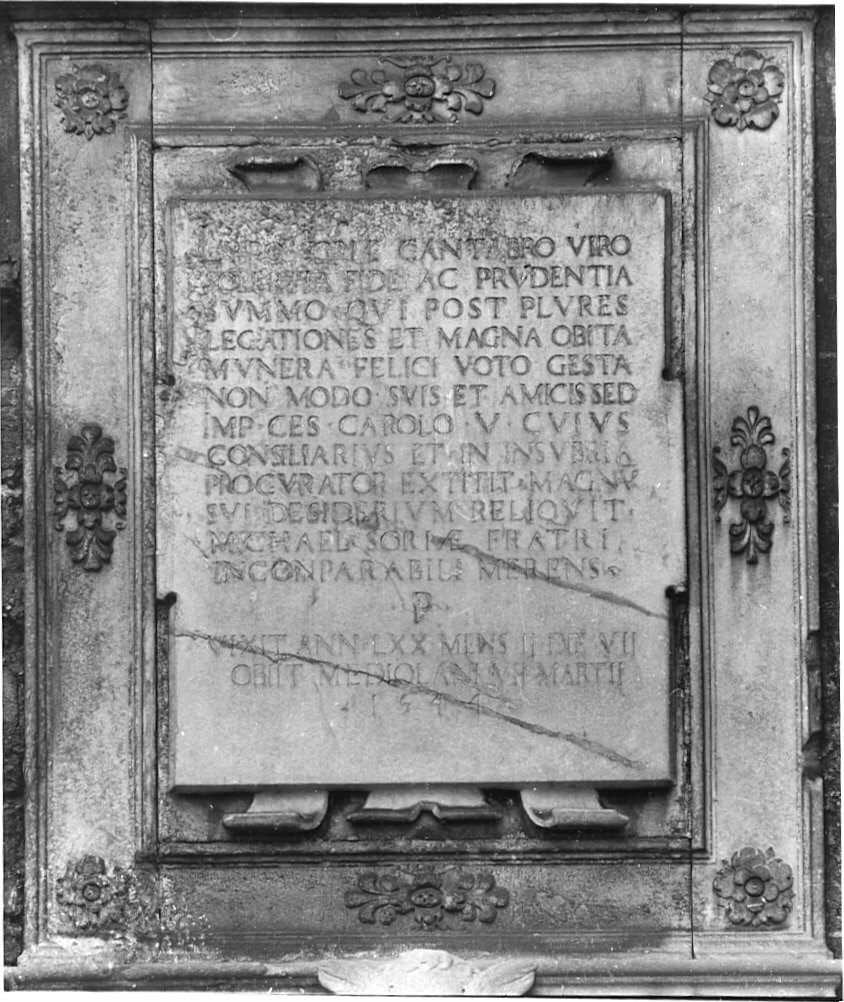 CANTABRO VIRO
FIDE AC PRVDENTIA
SVMMO · QVI POST PLVRES
LEGATIONES ET MAGNA OBITA
MVNERA FELICI VOTO GESTA
NON MODO SVIS ET AMICIS SED
IMP · CES · CAROLO · V · CVIVS
CONSILIARIVS ET IN INSVBRIA
PROCVRATOR EXTITIT · MAGNV
SVI DESIDERIVM RELIQVIT ·
MICHAEL FRATRI
INCONPARABILI MERENS ·
P
VIXIT ANN · LXX · MENS II DIE VII
OBIIT MEDIOLANI VII MARTII
1544